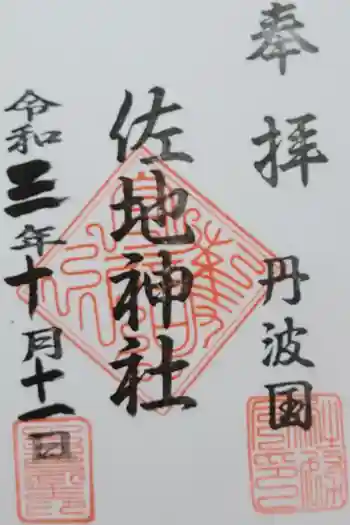 奉拝
丹波国
佐地神社
令和三年十月十一日